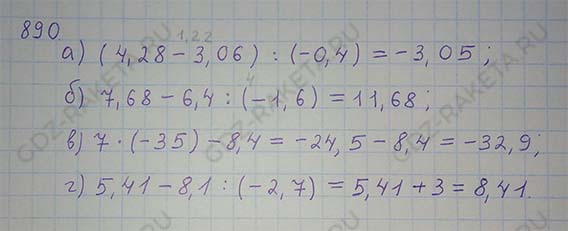 890.
1,22
а) (4,28 – 3,06) : (–0,4) = –3,05;
4
б) 7,68 – 6,4 : (–1,6) = 11,68;
в) 7 · (–35) – 8,4 = –24,5 – 8,4 = –32,9;
г) 5,41 – 8,1 : (–2,7) = 5,41 + 3 = 8,41.
GDZ-RAKETA.RU